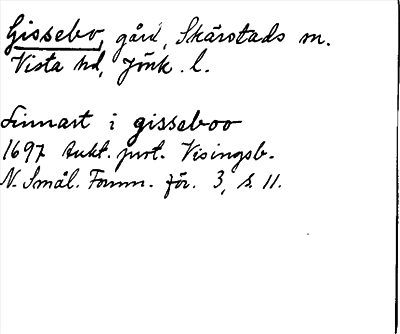 Gissebo, gård, Skärstads sn.
Vista hd, Jönk. l.
Linnart i gisseboo
1697 sukt. prot. Visingsb.
N. Smål. Fornm. för. 3, s. 11.